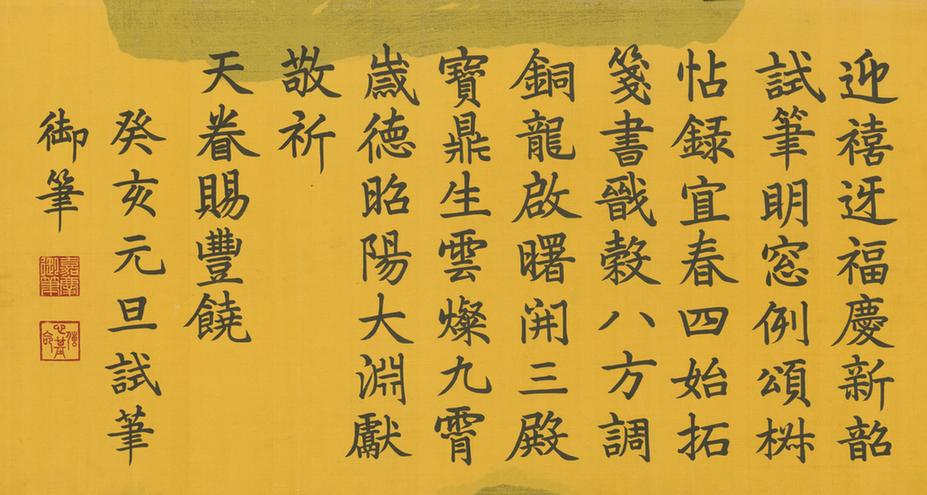 迎禧迓福慶新韶
試筆明窓例頌椒
帖録宜春四始拓
箋書戩穀八方調
銅龍啟曙開三殿
寶鼎生雲燦九霄
歲德昭陽大淵獻
敬祈
天眷賜豐饒
癸亥元旦試筆
御筆
嘉慶御筆